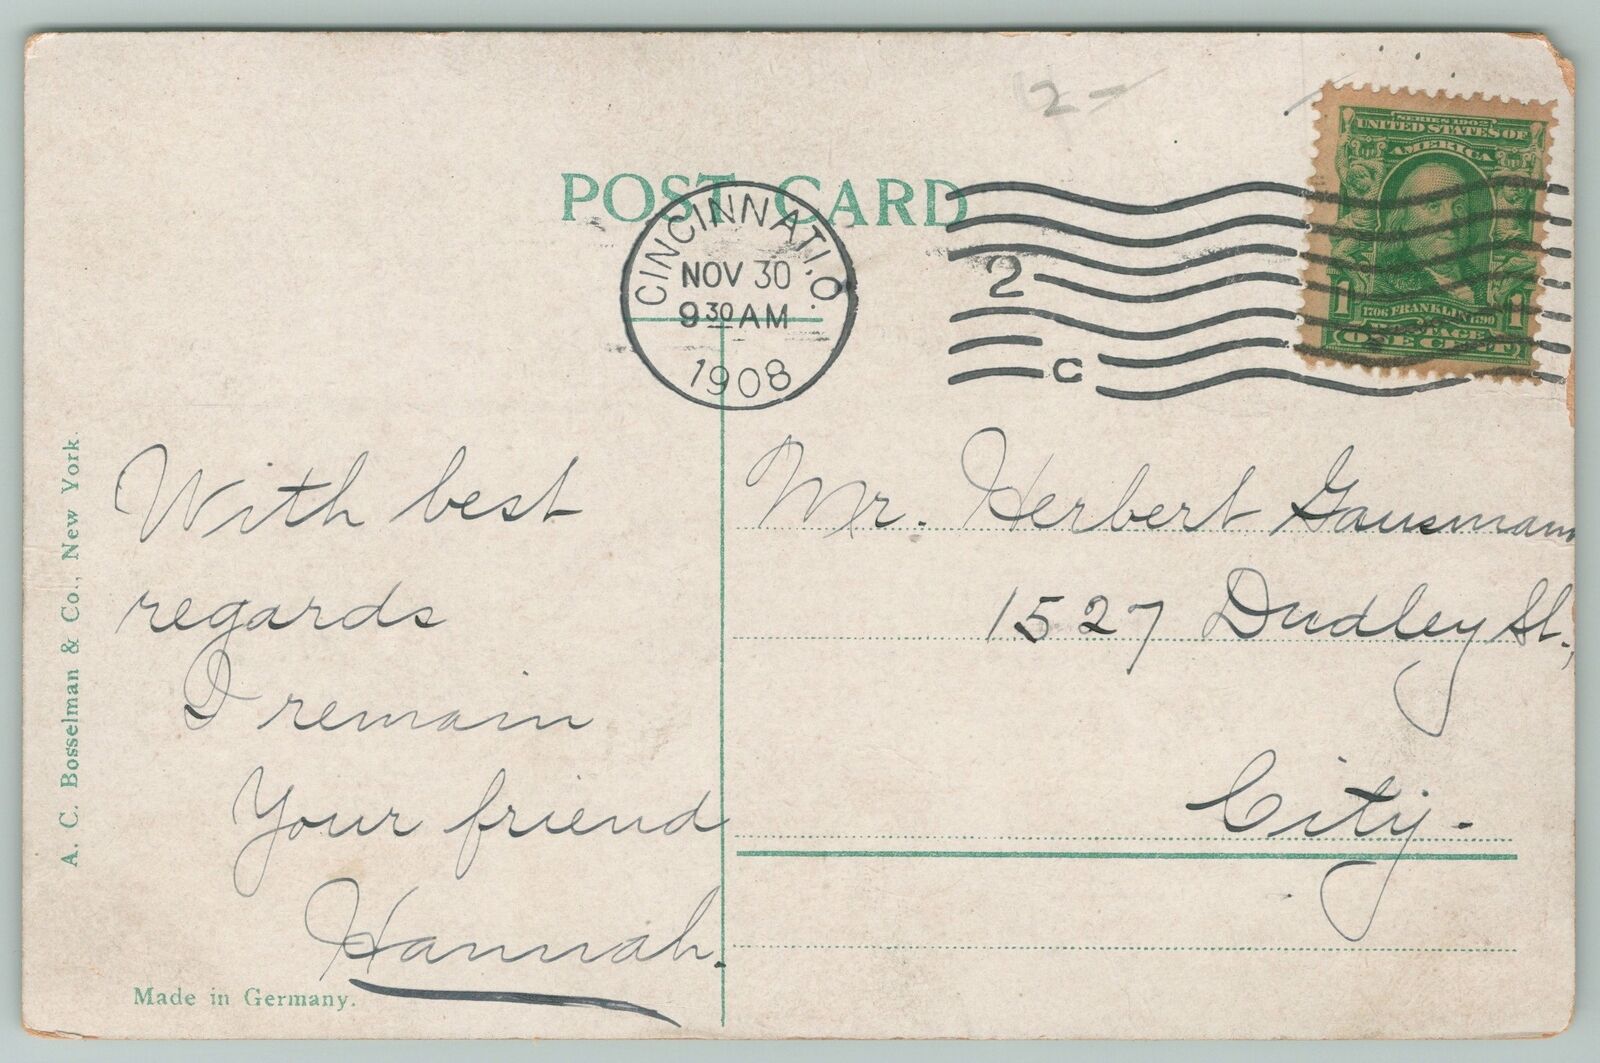 2-
SERIES 1902
UNITED STATES OF
AMERICA
1 1
1706 FRANKLIN 1790
POSTAGE
ONE CENT
POST CARD
CINCINNATI, O.
NOV 30
9 30 AM
1908
2
C
With best
regards
I remain
Your friend
Hannah.
Mr. Herbert Gausmann
1527 Dudley St.,
City.
A. C. Bosselman & Co., New York.
Made in Germany.